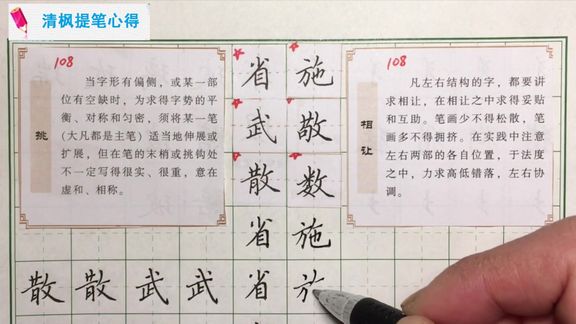 清枫提笔心得
108
挑
当字形有偏侧，或某一部
位有空缺时，为求得字势的平
衡、对称和匀密，须将某一笔
(大凡都是主笔) 适当地伸展或
扩展，但在笔的末梢或挑钩处
不一定写得很实、很重，意在
虚和、相称。
省 施
武 敬
散 数
省 施
散 散 武 武 省
108
相让
凡左右结构的字，都要讲
求相让，在相让之中求得妥贴
和互助。笔画少不得松散，笔
画多不得拥挤。在实践中注意
左右两部的各自位置，于法度
之中，力求高低错落，左右协
调。